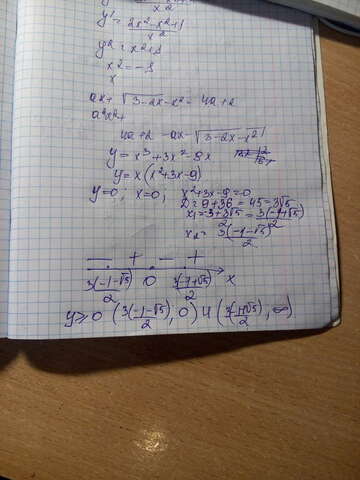 x²
y' = 2x² - x² + 1 / x²
y² = x² + 1
x² = -1
x
ax + √3-2x-x² = 4a+2
a²x² +
4a+2 -ax- √3-2x-x²
y = x³ + 3x² - 9x
y = x(x²+3x-9)
y=0; x=0; x²+3x-9=0
D = 9+36 = 45 = 3√5
x₁ = -3+3√5 / 2 = 3(-1+√5) / 2
x₂ = 3(-1-√5) / 2
- + - +
3(-1-√5) / 2 0 3(-1+√5) / 2 x
y ≥ 0 (3(-1-√5) / 2, 0) U (3(-1+√5) / 2, ∞)